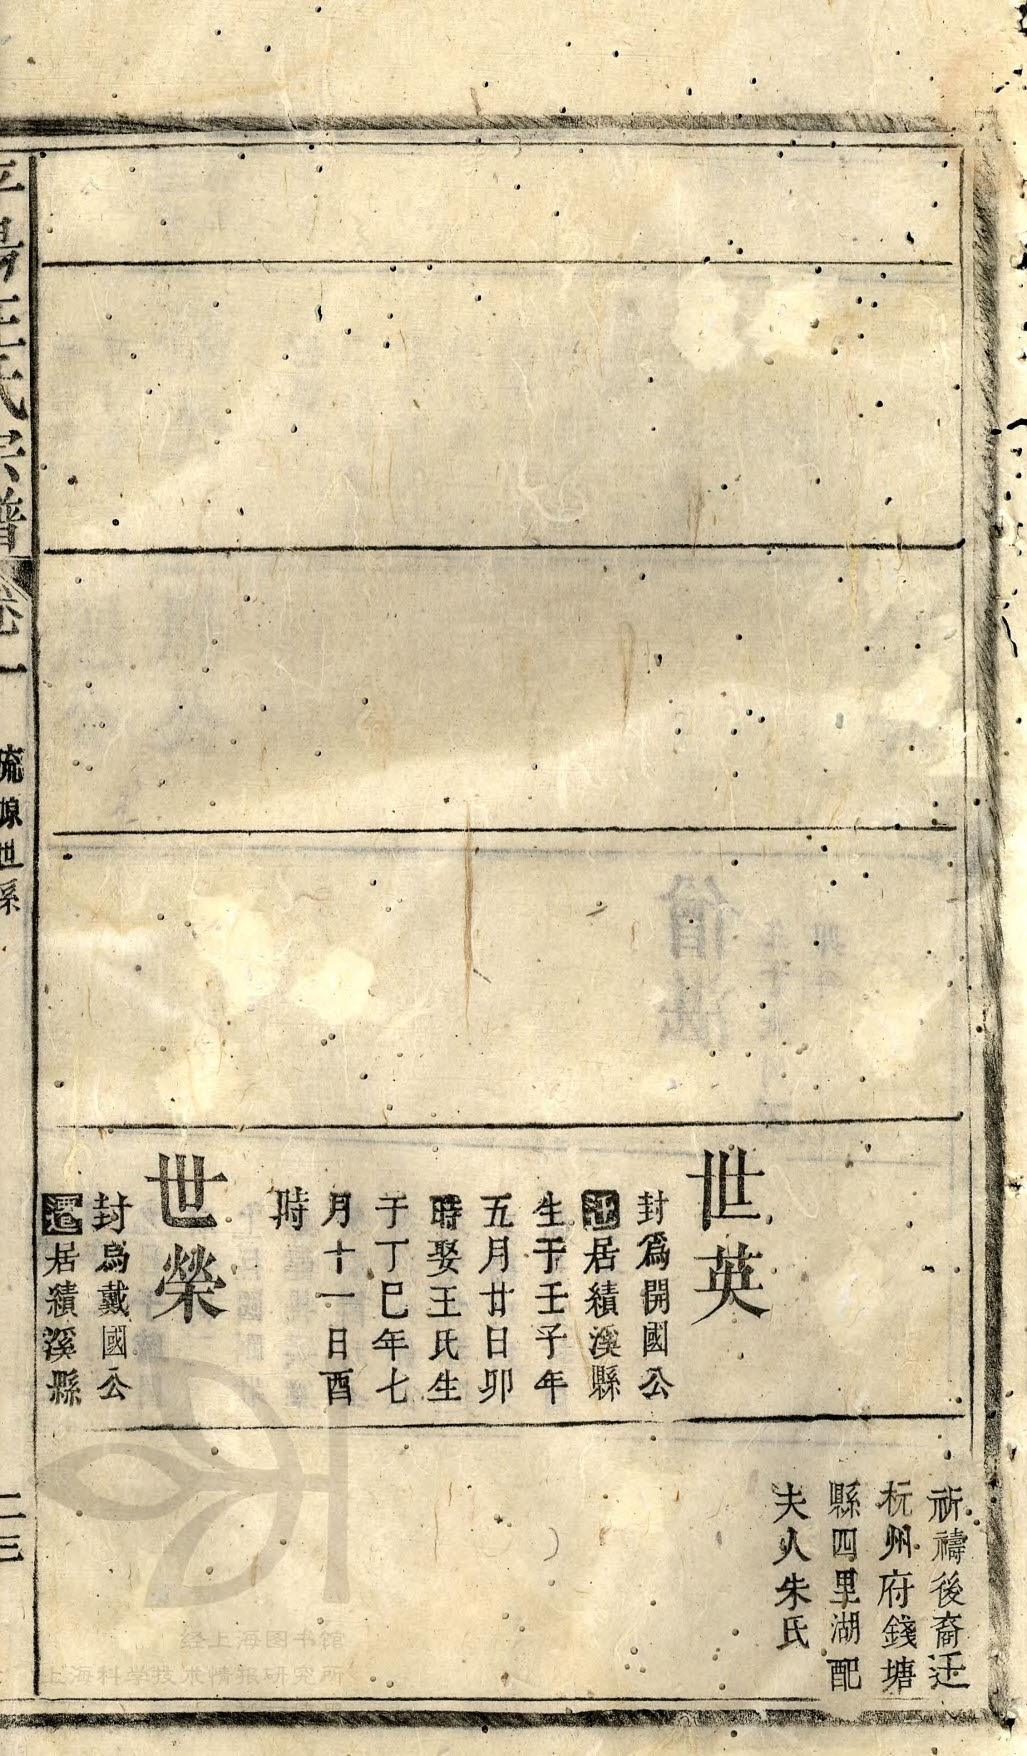 世英
封爲開國公
居績溪縣
生于壬子年
五月廿日卯
時娶王氏生
于丁巳年七
月十一日酉
時
世榮
封爲戴國公
遷居績溪縣
祈禱後裔迁
杭州府錢塘
縣四里湖配
夫人朱氏
平陽汪氏宗譜 卷一 琉㻋世系 二三
经上海图书馆
上海科学技术情报研究所